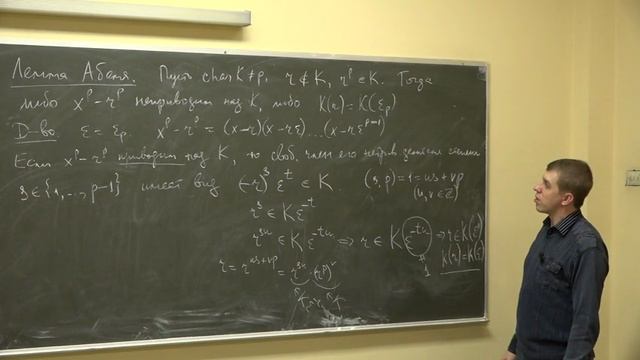 Лемма Абеля. Пусть char K ≠ p, r ∉ K, r^p ∈ K. Тогда
либо x^p - r^p неприводим над K, либо K(r) = K(ε_p)
D-во. ε = ε_p. x^p - r^p = (x-r)(x-rε)...(x-rε^{p-1})
Если x^p - r^p приводим над K, то своб. член его неприв. делителя степени
s ∈ {1, ..., p-1} имеет вид (-r)^s ε^t ∈ K. (s, p) = 1 = us + vp
(u, v ∈ ℤ)
r^s ∈ K ε^{-t}
r^{su} ∈ K ε^{-tu} ⟹ r ∈ K ε^{-tu} ⟹ r ∈ K(ε)
r = r^{us+vp} = r^{su} · (r^p)^v
K(r) = K(ε)